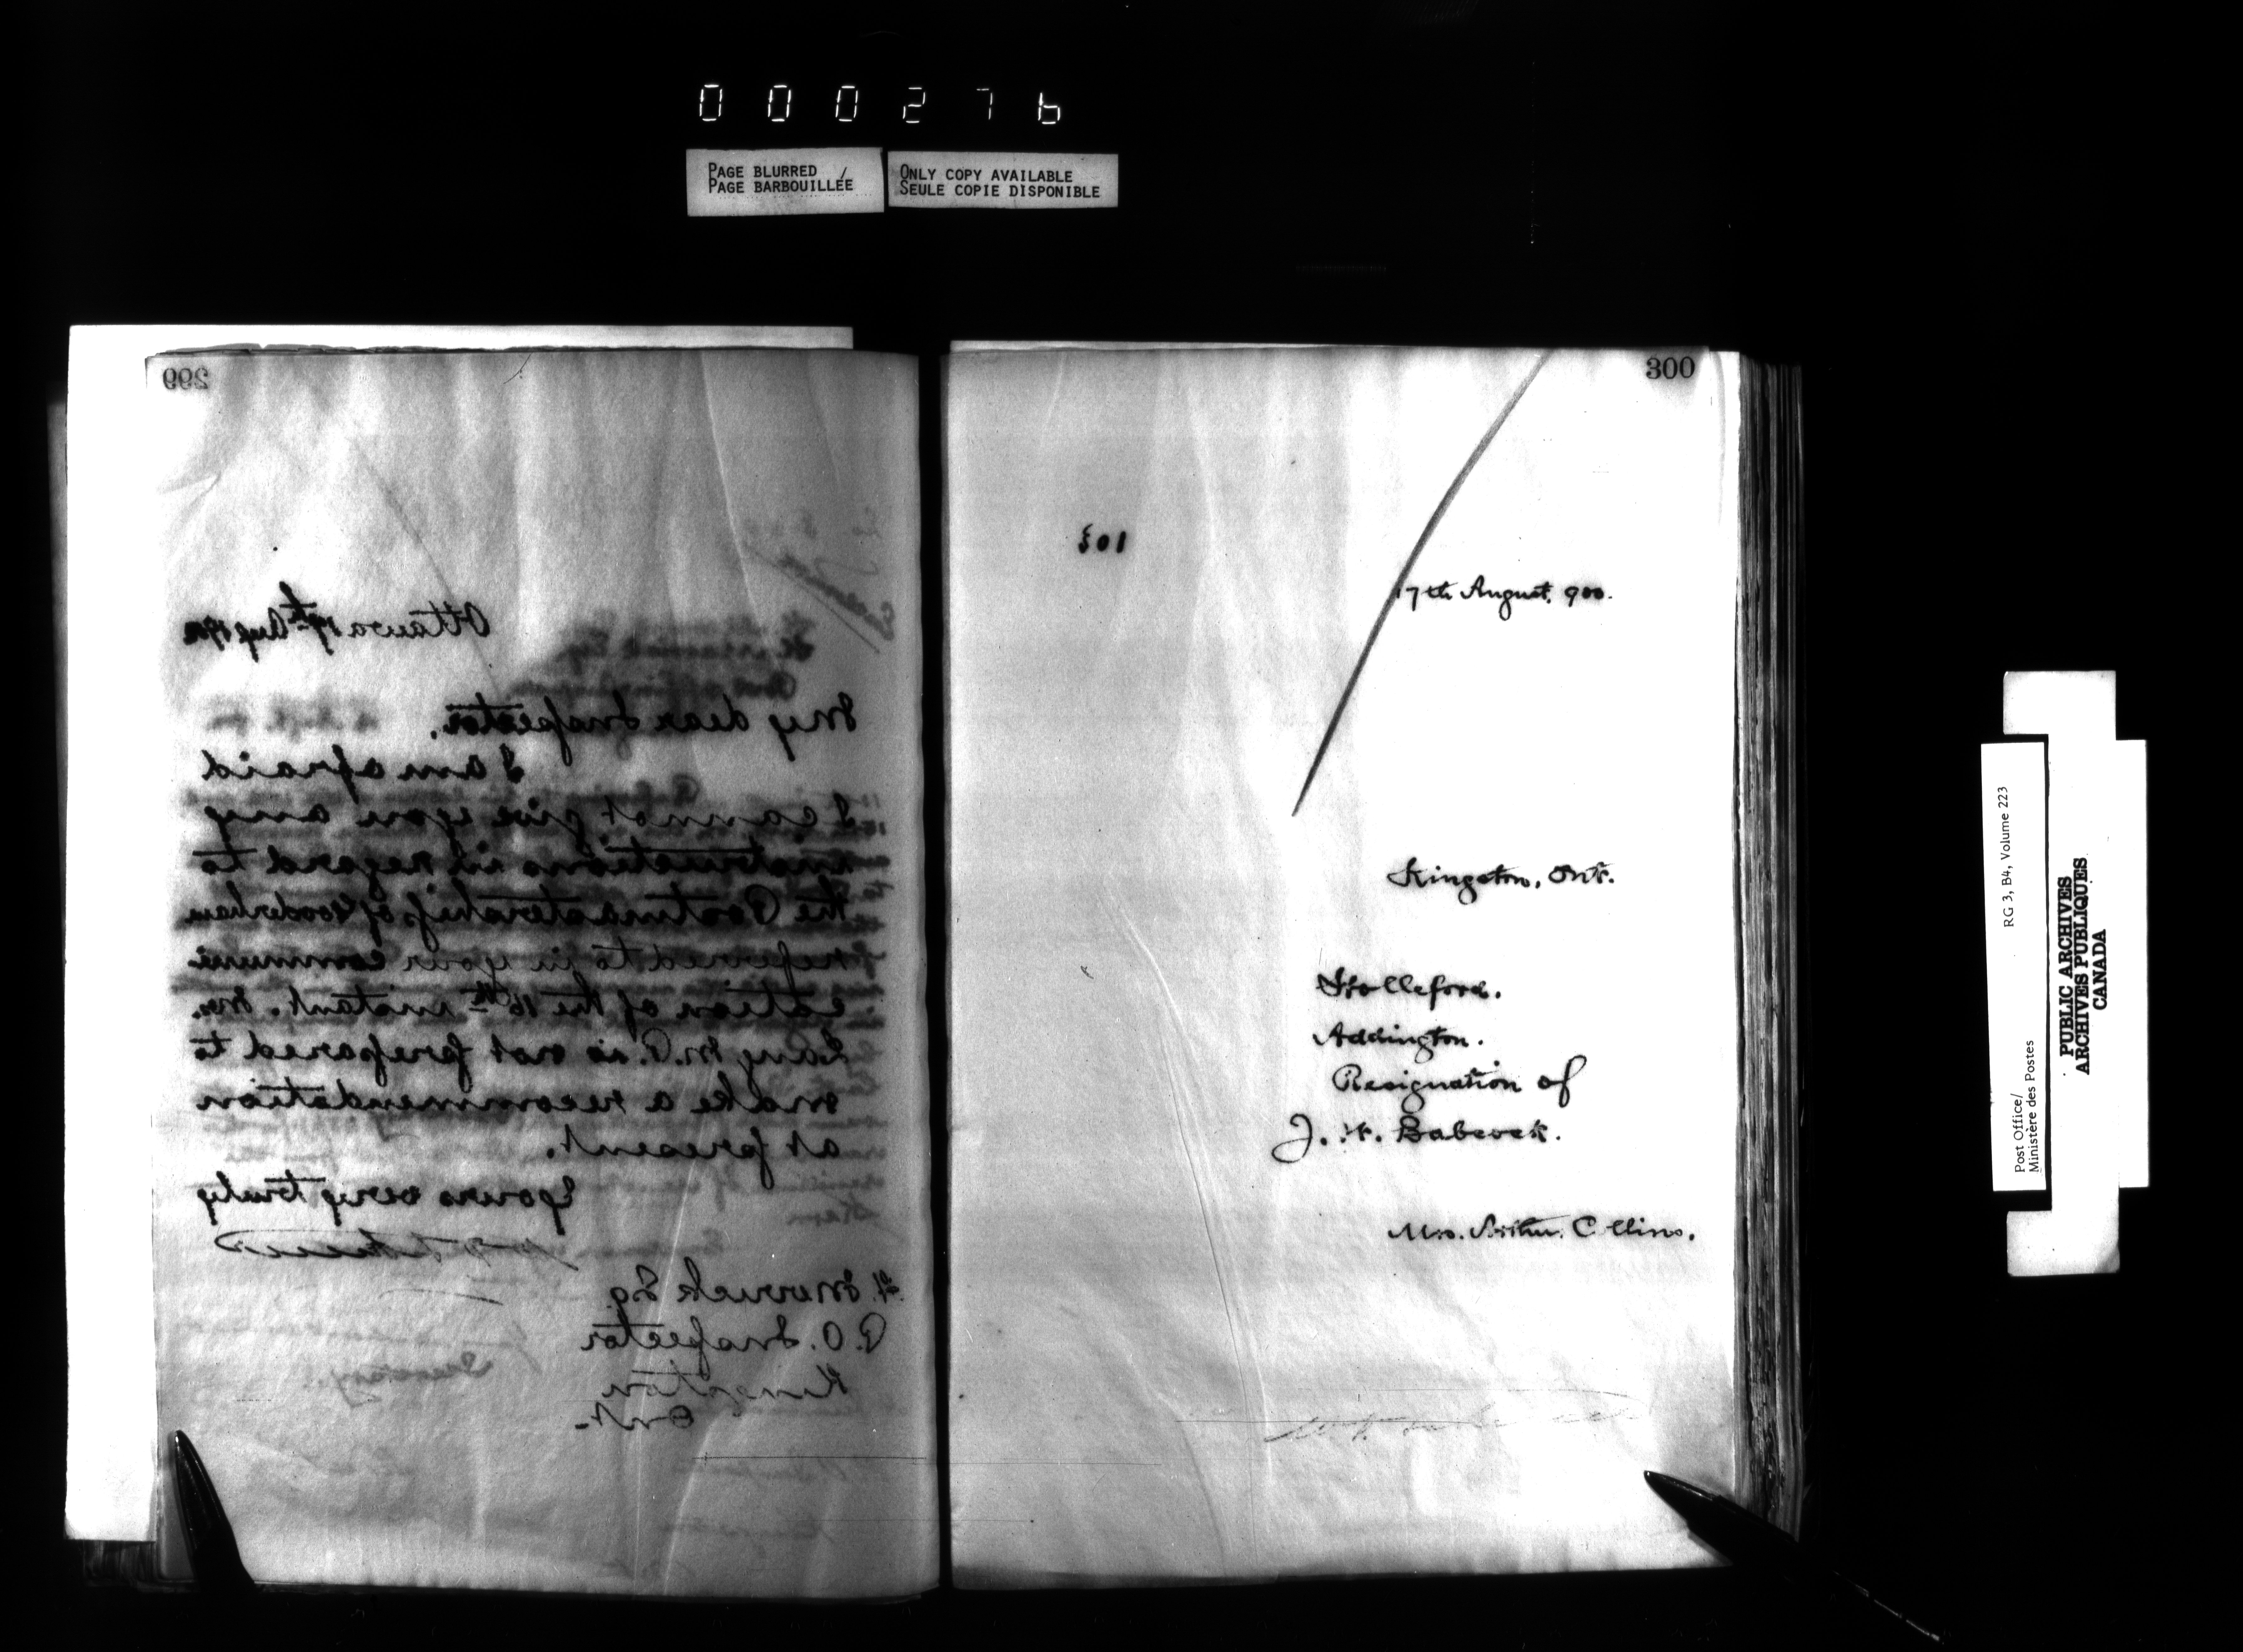 000276
PAGE BLURRED /
PAGE BARBOUILLÉE
ONLY COPY AVAILABLE
SEULE COPIE DISPONIBLE
299
Ottawa 17th Aug 1900
My dear Inspector,
I am afraid
I cannot give you any
instructions in regard to
the Postmastership of Gooderham
referred to in your communi
cation of the 16th instant. Mr.
Lang M.P. is not prepared to
make a recommendation
at present.
Yours very truly
H. Merrick Esq.
P.O. Inspector
Kingston
Ont.
Secretary.
300
301
17th August, 900.
Kingston, Ont.
Holleford.
Addington.
Resignation of
J. H. Babcock.
Mrs. Arthur Collins.
Post Office/
Ministère des Postes
RG 3, B4, Volume 223
PUBLIC ARCHIVES
ARCHIVES PUBLIQUES
CANADA